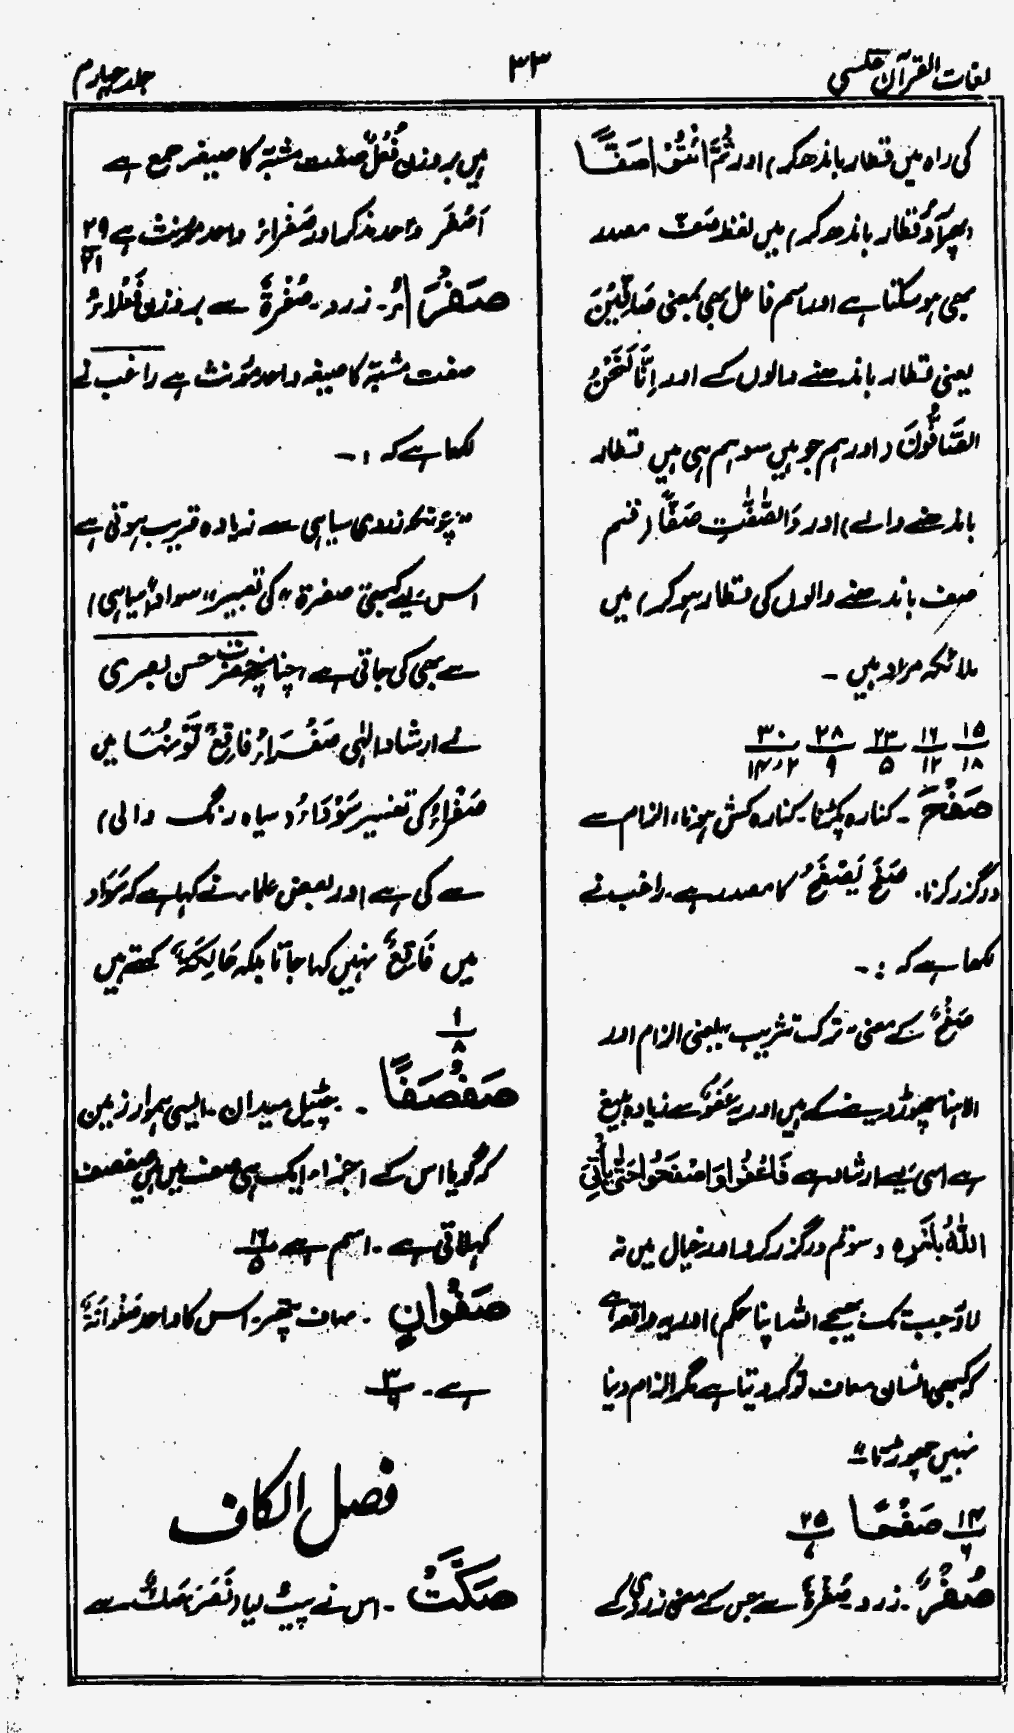 لغات القرآن عکسی
۳۳
جلد چہارم
کی راہ میں قطار باندھ کر) اور ثُمَّ ائْتُوْا صَفًّا
(پھر آؤ قطار باندھ کر) میں لفظ صَفّ مصدر
بھی ہو سکتا ہے اور اسم فاعل بھی بمعنی صَافِّیْنَ
یعنی قطار باندھنے والوں کے اور اِنَّا لَنَحْنُ
الصَّافُّوْنَ (اور ہم جو ہیں سو ہم ہی ہیں قطار
باندھنے والے) اور وَالصّٰفّٰتِ صَفًّا (قسم
صف باندھنے والوں کی قطار ہو کر) میں
ملائکہ مراد ہیں ۔
۱۵ ۱۶ ۲۳ ۲۸ ۳۰
۱۸ ۱۲ ۵ ۹ ۲،۱۴
صَفْحَ ۔ کنارہ پکڑنا ۔ کنارہ کش ہونا، الزام سے
درگزر کرنا ۔ صَفَحَ یَصْفَحُ کا مصدر ہے ۔ راغب نے
لکھا ہے کہ :۔
صَفْحٌ کے معنی "ترک تثریب" یعنی الزام اور
الاہنا چھوڑ دینے کے ہیں اور یہ عَفْوٌ سے زیادہ بلیغ
ہے اسی لیے ارشاد ہے فَاعْفُوْا وَاصْفَحُوْا حَتّٰی یَأْتِیَ
اللّٰہُ بِاَمْرِہٖ (سو تم درگزر کرو اور خیال میں نہ
لاؤ جب تک بھیجے اللہ اپنا حکم) اور یہ واقعہ ہے
کہ کبھی انسان معاف تو کر دیتا ہے مگر الزام دینا
نہیں چھوڑتا"
۱۴ صَفْحًا ۲۵
۶ ۷
صُفْرٌ ۔ زرد ۔ صُفْرَۃٌ سے جس کے معنی زردی کے
ہیں بروزن فُعْلٌ صفت مشبّہ کا صیغہ جمع ہے
اَصْفَرَ واحد مذکر اور صَفْرَاءُ واحد مؤنث ہے ۲۹
۲۱
صَفْرَاءُ ۔ زرد ۔ صُفْرَۃٌ سے بروزن فَعْلَاءُ
صفت مشبّہ کا صیغہ واحد مؤنث ہے راغب نے
لکھا ہے کہ :۔
"چونکہ زردی سیاہی سے زیادہ قریب ہوتی ہے
اس لیے کبھی صفرۃ" کی تعبیر "سواد (سیاہی)
سے بھی کی جاتی ہے، چنانچہ حضرت حسن بصری
نے ارشاد الٰہی صَفْرَاءُ فَاقِعٌ لَّوْنُہَا میں
صَفْرَاءُ کی تفسیر سَوْدَاءُ (سیاہ رنگ والی)
سے کی ہے اور بعض علماء نے کہا ہے کہ سَوَاد
میں فَاقِعٌ نہیں کہا جاتا بلکہ حَالِکَۃٌ کہتے ہیں
۱
۸
صَفْصَفًا ۔ چٹیل میدان ۔ ایسی ہموار زمین
کہ گویا اس کے اجزاء ایک ہی صف میں ہیں صفصف
کہلاتی ہے ۔ اسم ہے ۱۶
۵
صَفْوَانٍ ۔ صاف پتھر ۔ اس کا واحد صَفْوَانَۃٌ
ہے ۔ ۳
فصل الکاف
صَکَّتْ ۔ اس نے پیٹ لیا (نَصَرَ) صَکٌّ سے